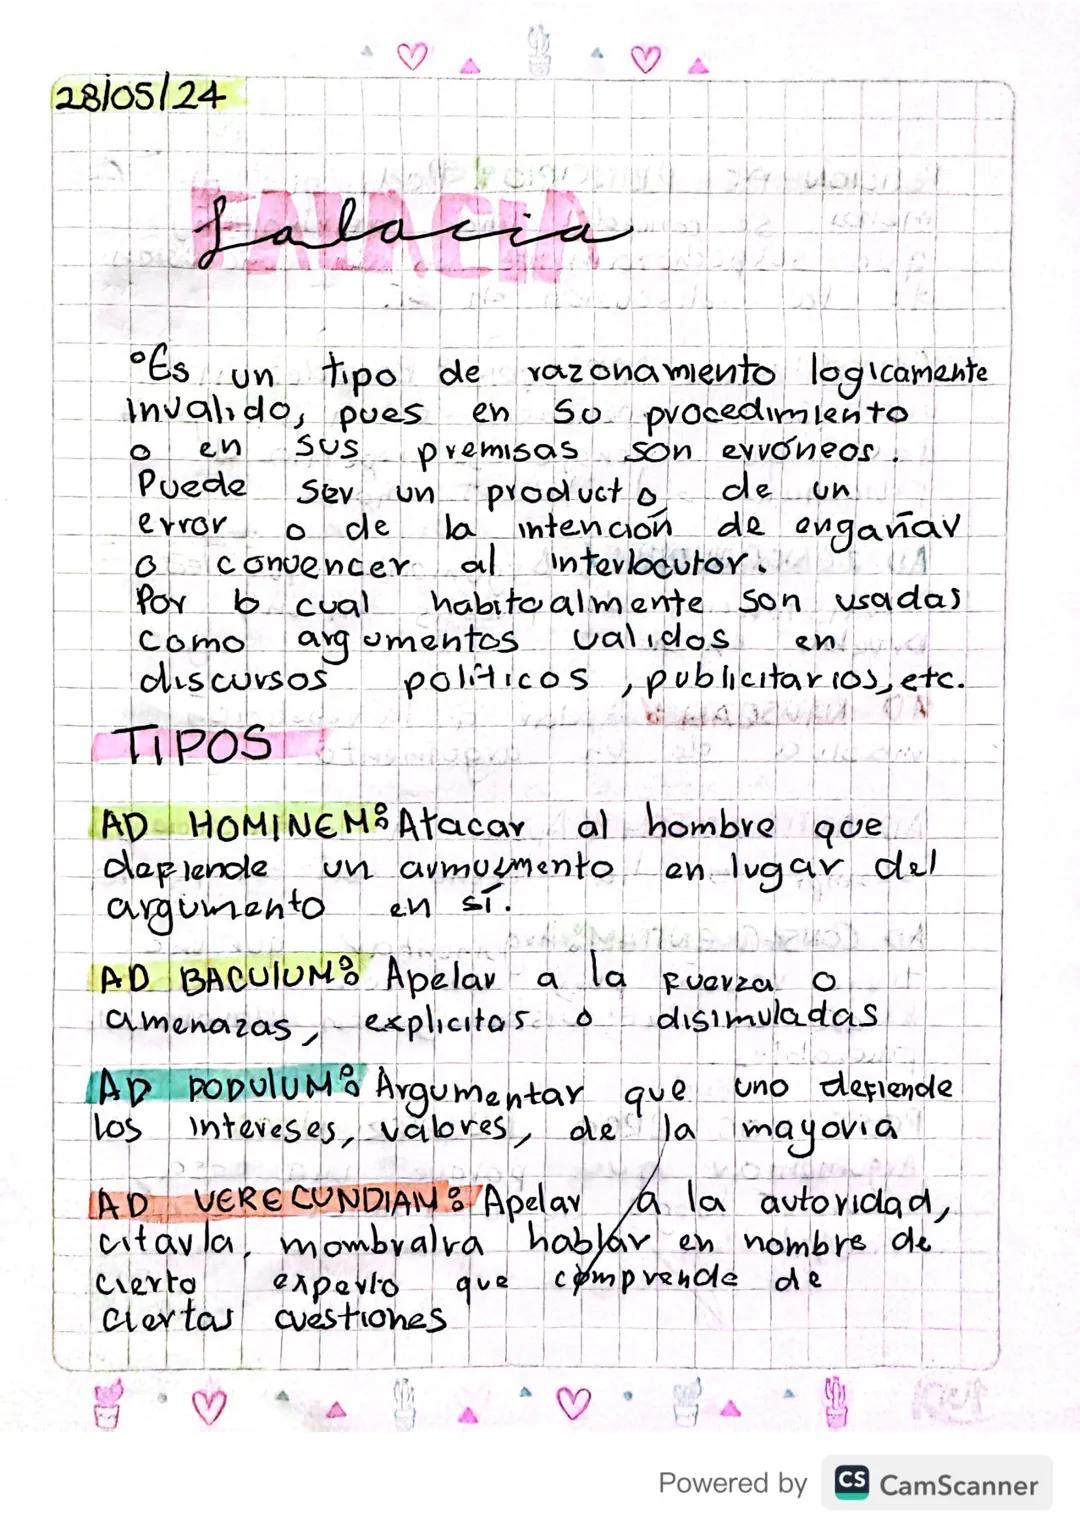 28/05/24
FALACIA
falacia
°Es un tipo de razonamiento logicamente
invalido, pues en so procedimiento
o en sus premisas son erróneos.
Puede ser un producto de un
error o de la intención de engañar
o convencer al interlocutor.
Por lo cual habitoalmente son usadas
como argumentos validos en
discursos políticos, publicitarios, etc.
TIPOS
AD HOMINEM: Atacar al hombre que
defiende un armugmento en lugar del
argumento en sí.
AD BACULUM: Apelar a la fuerza o
amenazas, explicitas o disimuladas
AD POPULUM: Argumentar que uno defiende
los intereses, valores, de la mayoria
AD VERECUNDIAM: Apelar a la autoridad,
citarla, mombralra hablar en nombre de
cierto experto que comprende de
ciertas cuestiones
Powered by CS CamScanner